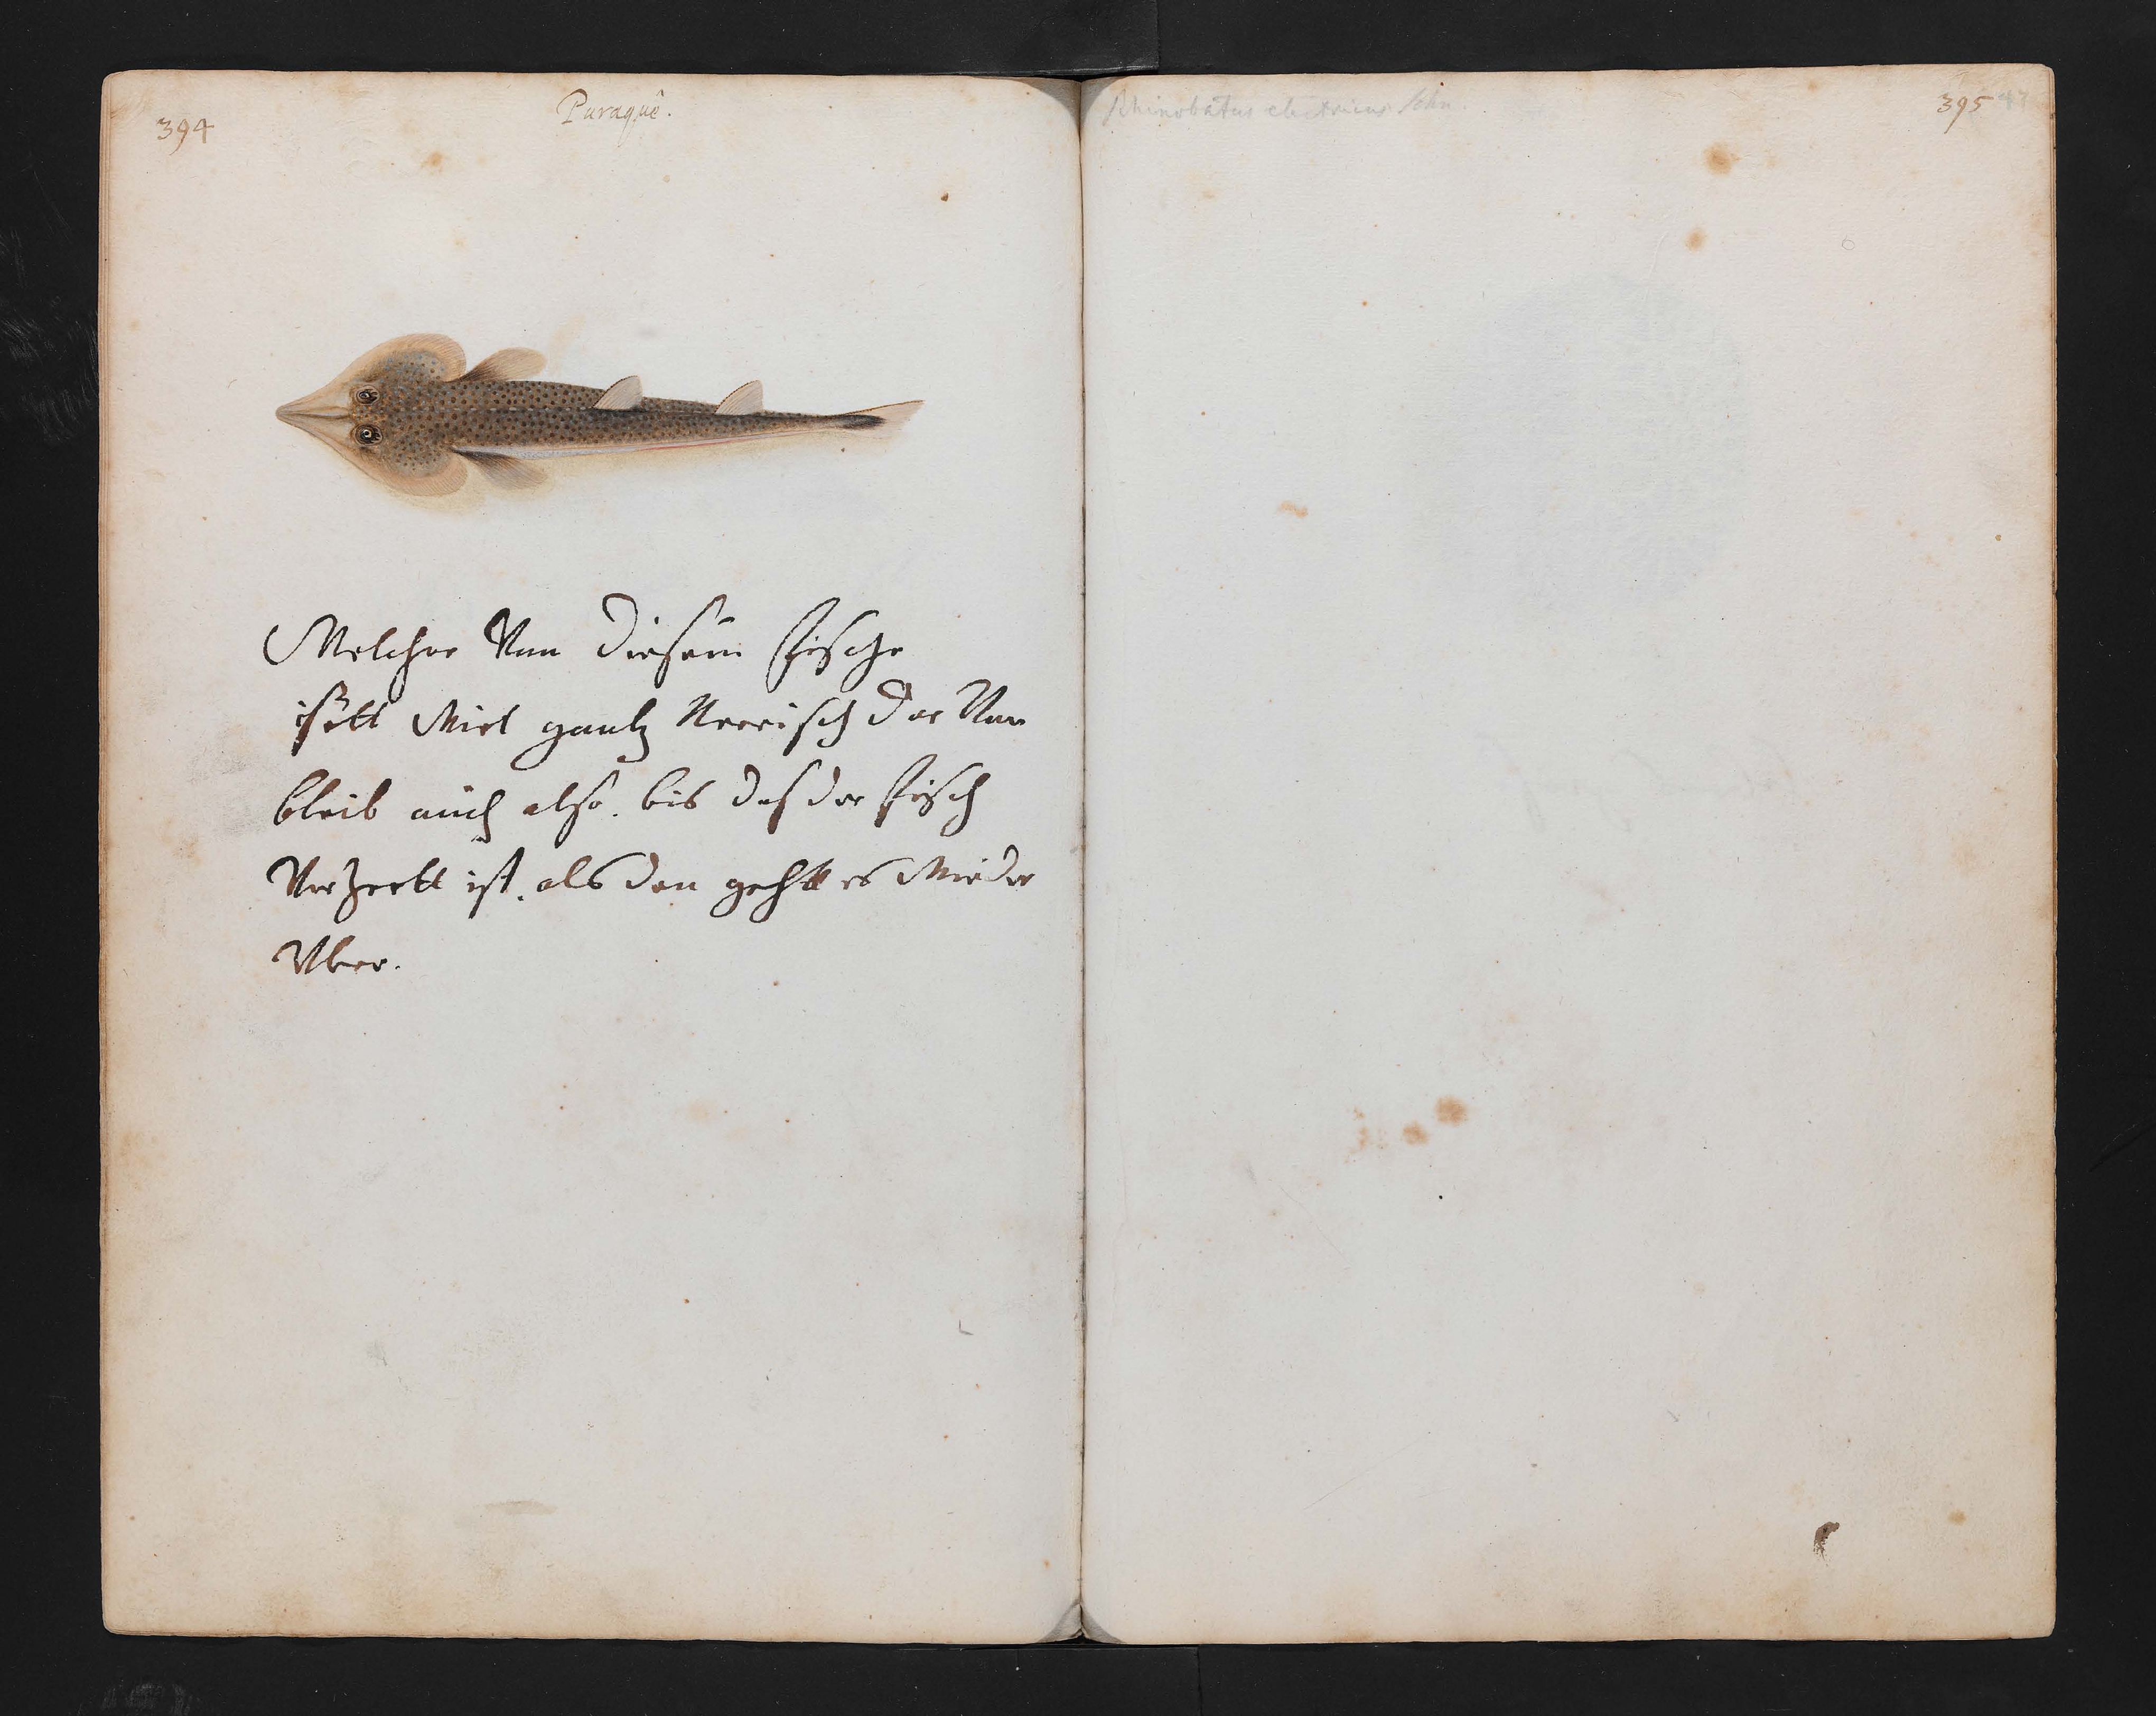 394
Puraquê.
Welcher Van diesem fische
ißett Wirt gantz Nerrisch dar Van
bleib auch also. bis das der fisch
Verzertt ist. als dan gehtt es Wieder
Vber.
Rhinobatus electricus Schn.
395